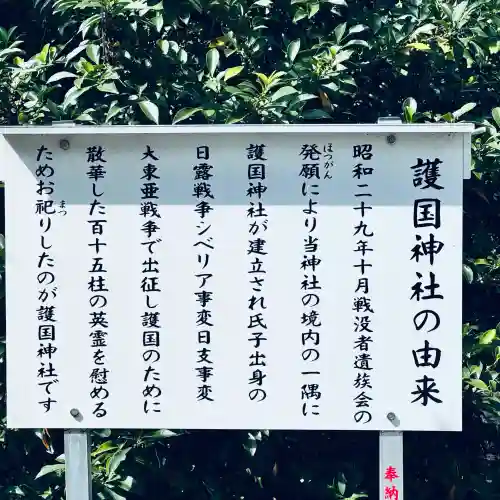 護国神社の由来
昭和二十九年十月戦没者遺族会の
発願により当神社の境内の一隅に
ほつがん
護国神社が建立され氏子出身の
日露戦争シベリア事変日支事変
大東亜戦争で出征し護国のために
散華した百十五柱の英霊を慰める
ためお祀りしたのが護国神社です
まつ
奉納